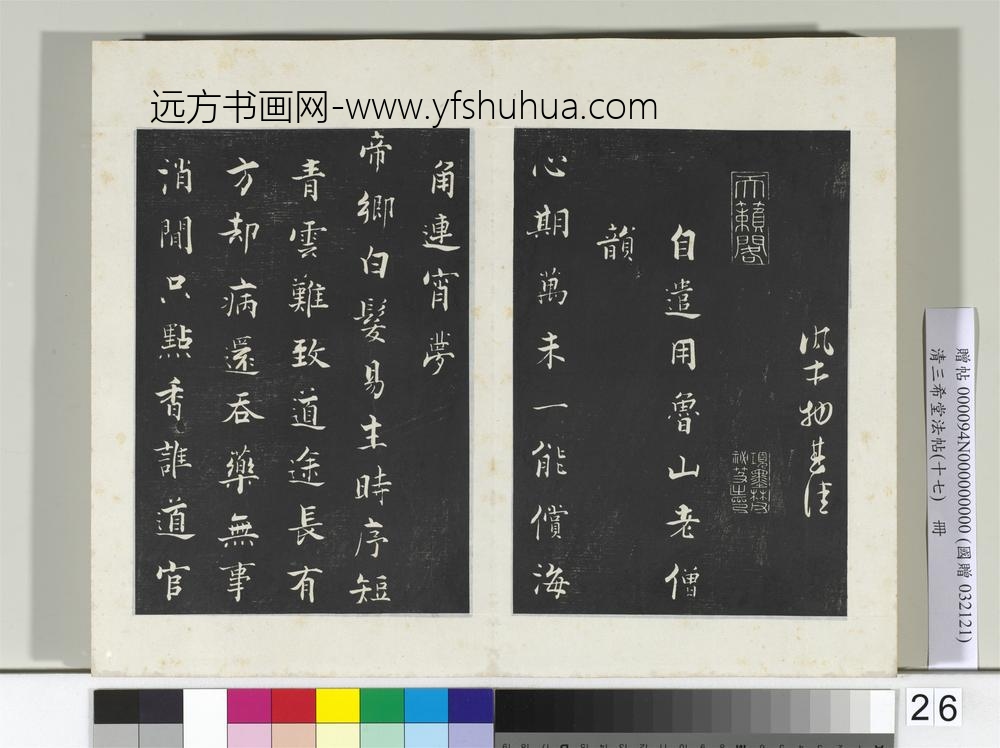 远方书画网-www.yfshuhua.com
天籟閣
自遣用魯山老僧
韻
心期萬未一能償海
角連宵夢
帝鄉白髮易生時序短
青雲難致道途長有
方却病還吞藥無事
消閒只點香誰道官
贈帖 000094N000000000 (國贈 032121)
清三希堂法帖(十七) 冊
26